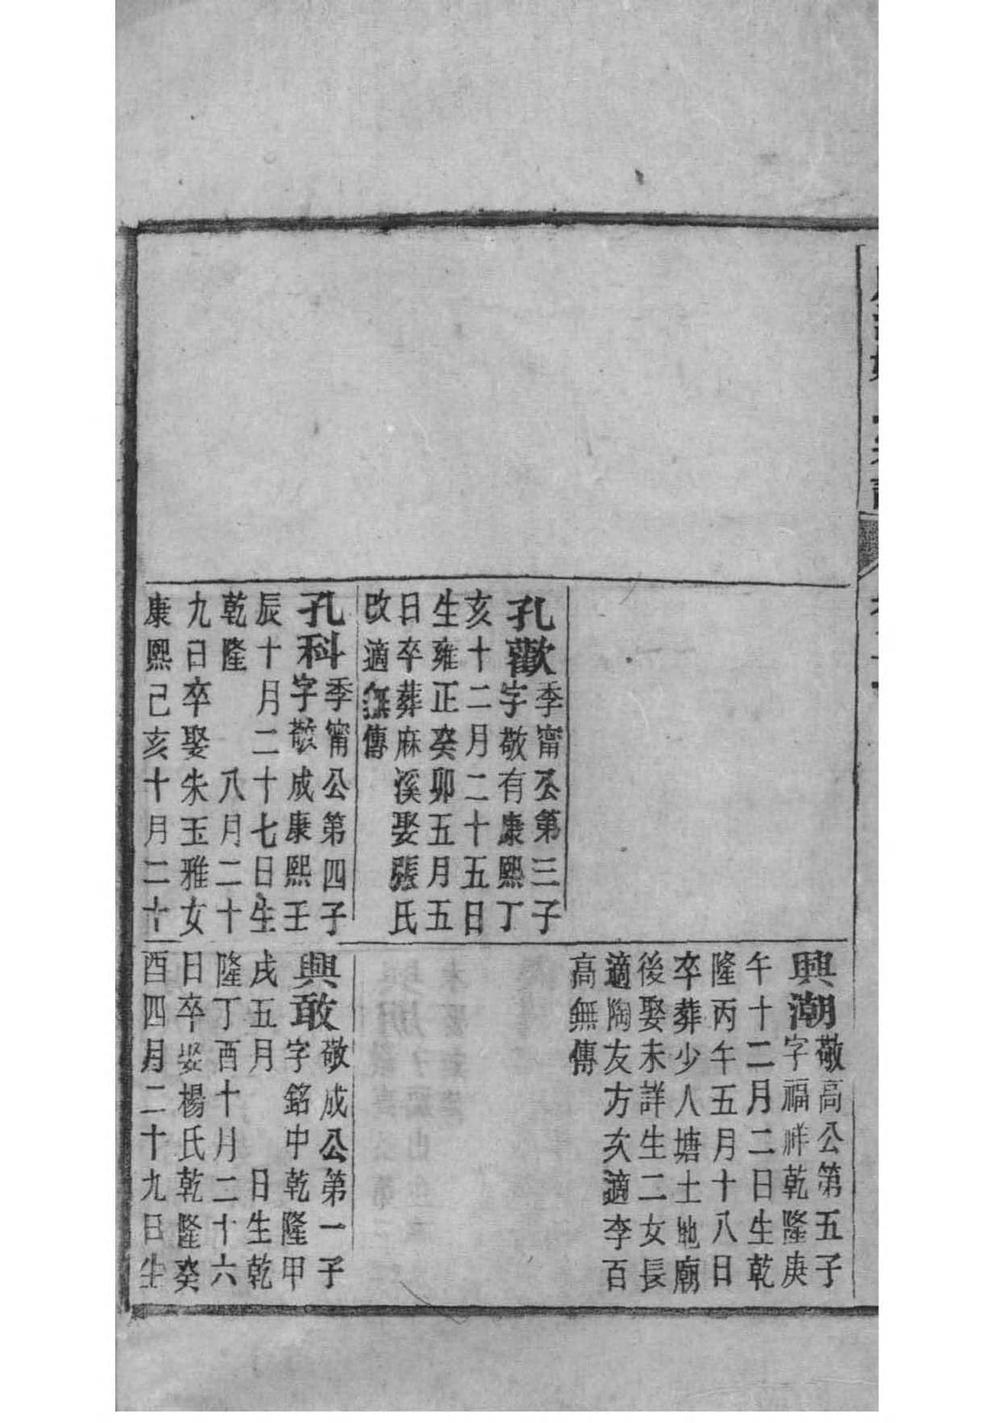 孔歡季甯公第三子
字敬有康熙丁
亥十二月二十五日
生雍正癸卯五月五
日卒葬麻溪娶張氏
改適無傳
孔科季甯公第四子
字敬成康熙壬
辰十月二十七日生
乾隆　八月二十
九日卒娶朱玉雅女
康熙己亥十月二十
興潮敬高公第五子
字福祥乾隆庚
午十二月二日生乾
隆丙午五月十八日
卒葬少人塘土地廟
後娶未詳生二女長
適陶友方次適李百
高無傳
興敢敬成公第一子
字銘中乾隆甲
戌五月　日生乾
隆丁酉十月二十六
日卒娶楊氏乾隆癸
酉四月二十九日生